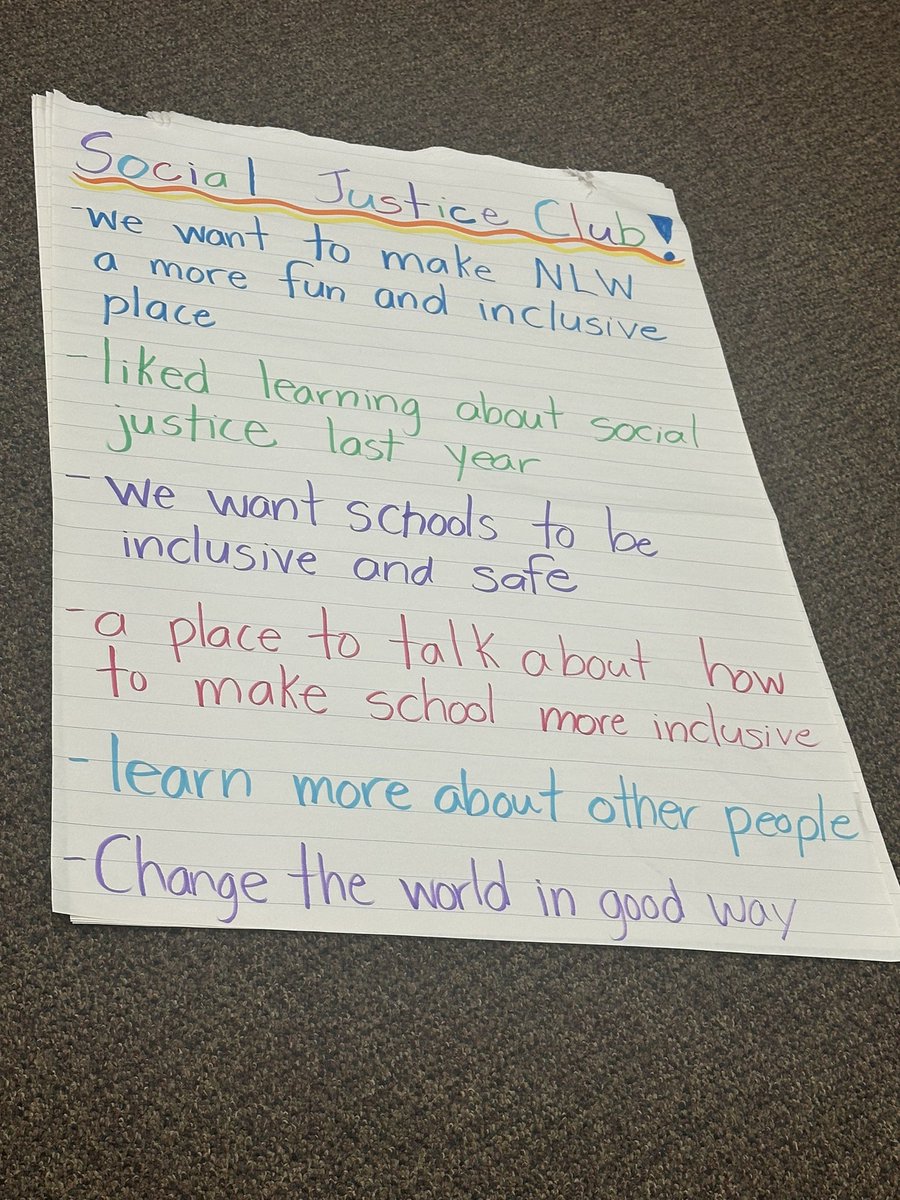 Social Justice Club!
-we want to make NLW
a more fun and inclusive
place
-liked learning about social
justice last year
-we want schools to be
inclusive and safe
-a place to talk about how
to make school more inclusive
-learn more about other people
-Change the world in good way